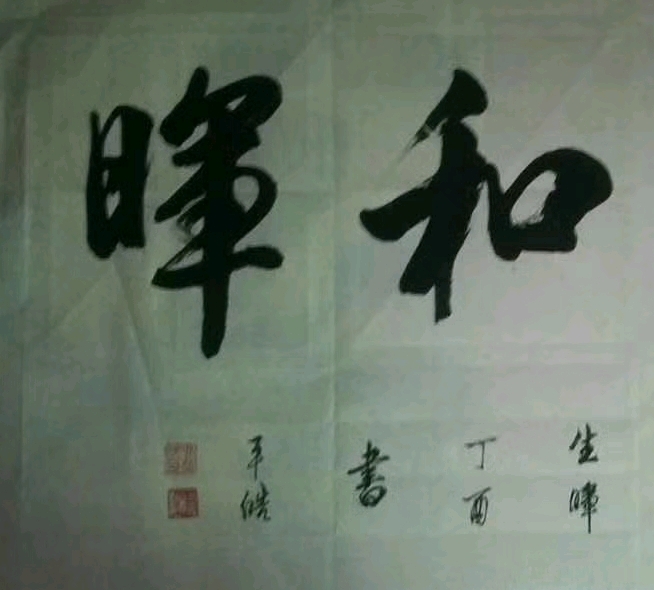 和暉
生暉
丁酉
書
平皓